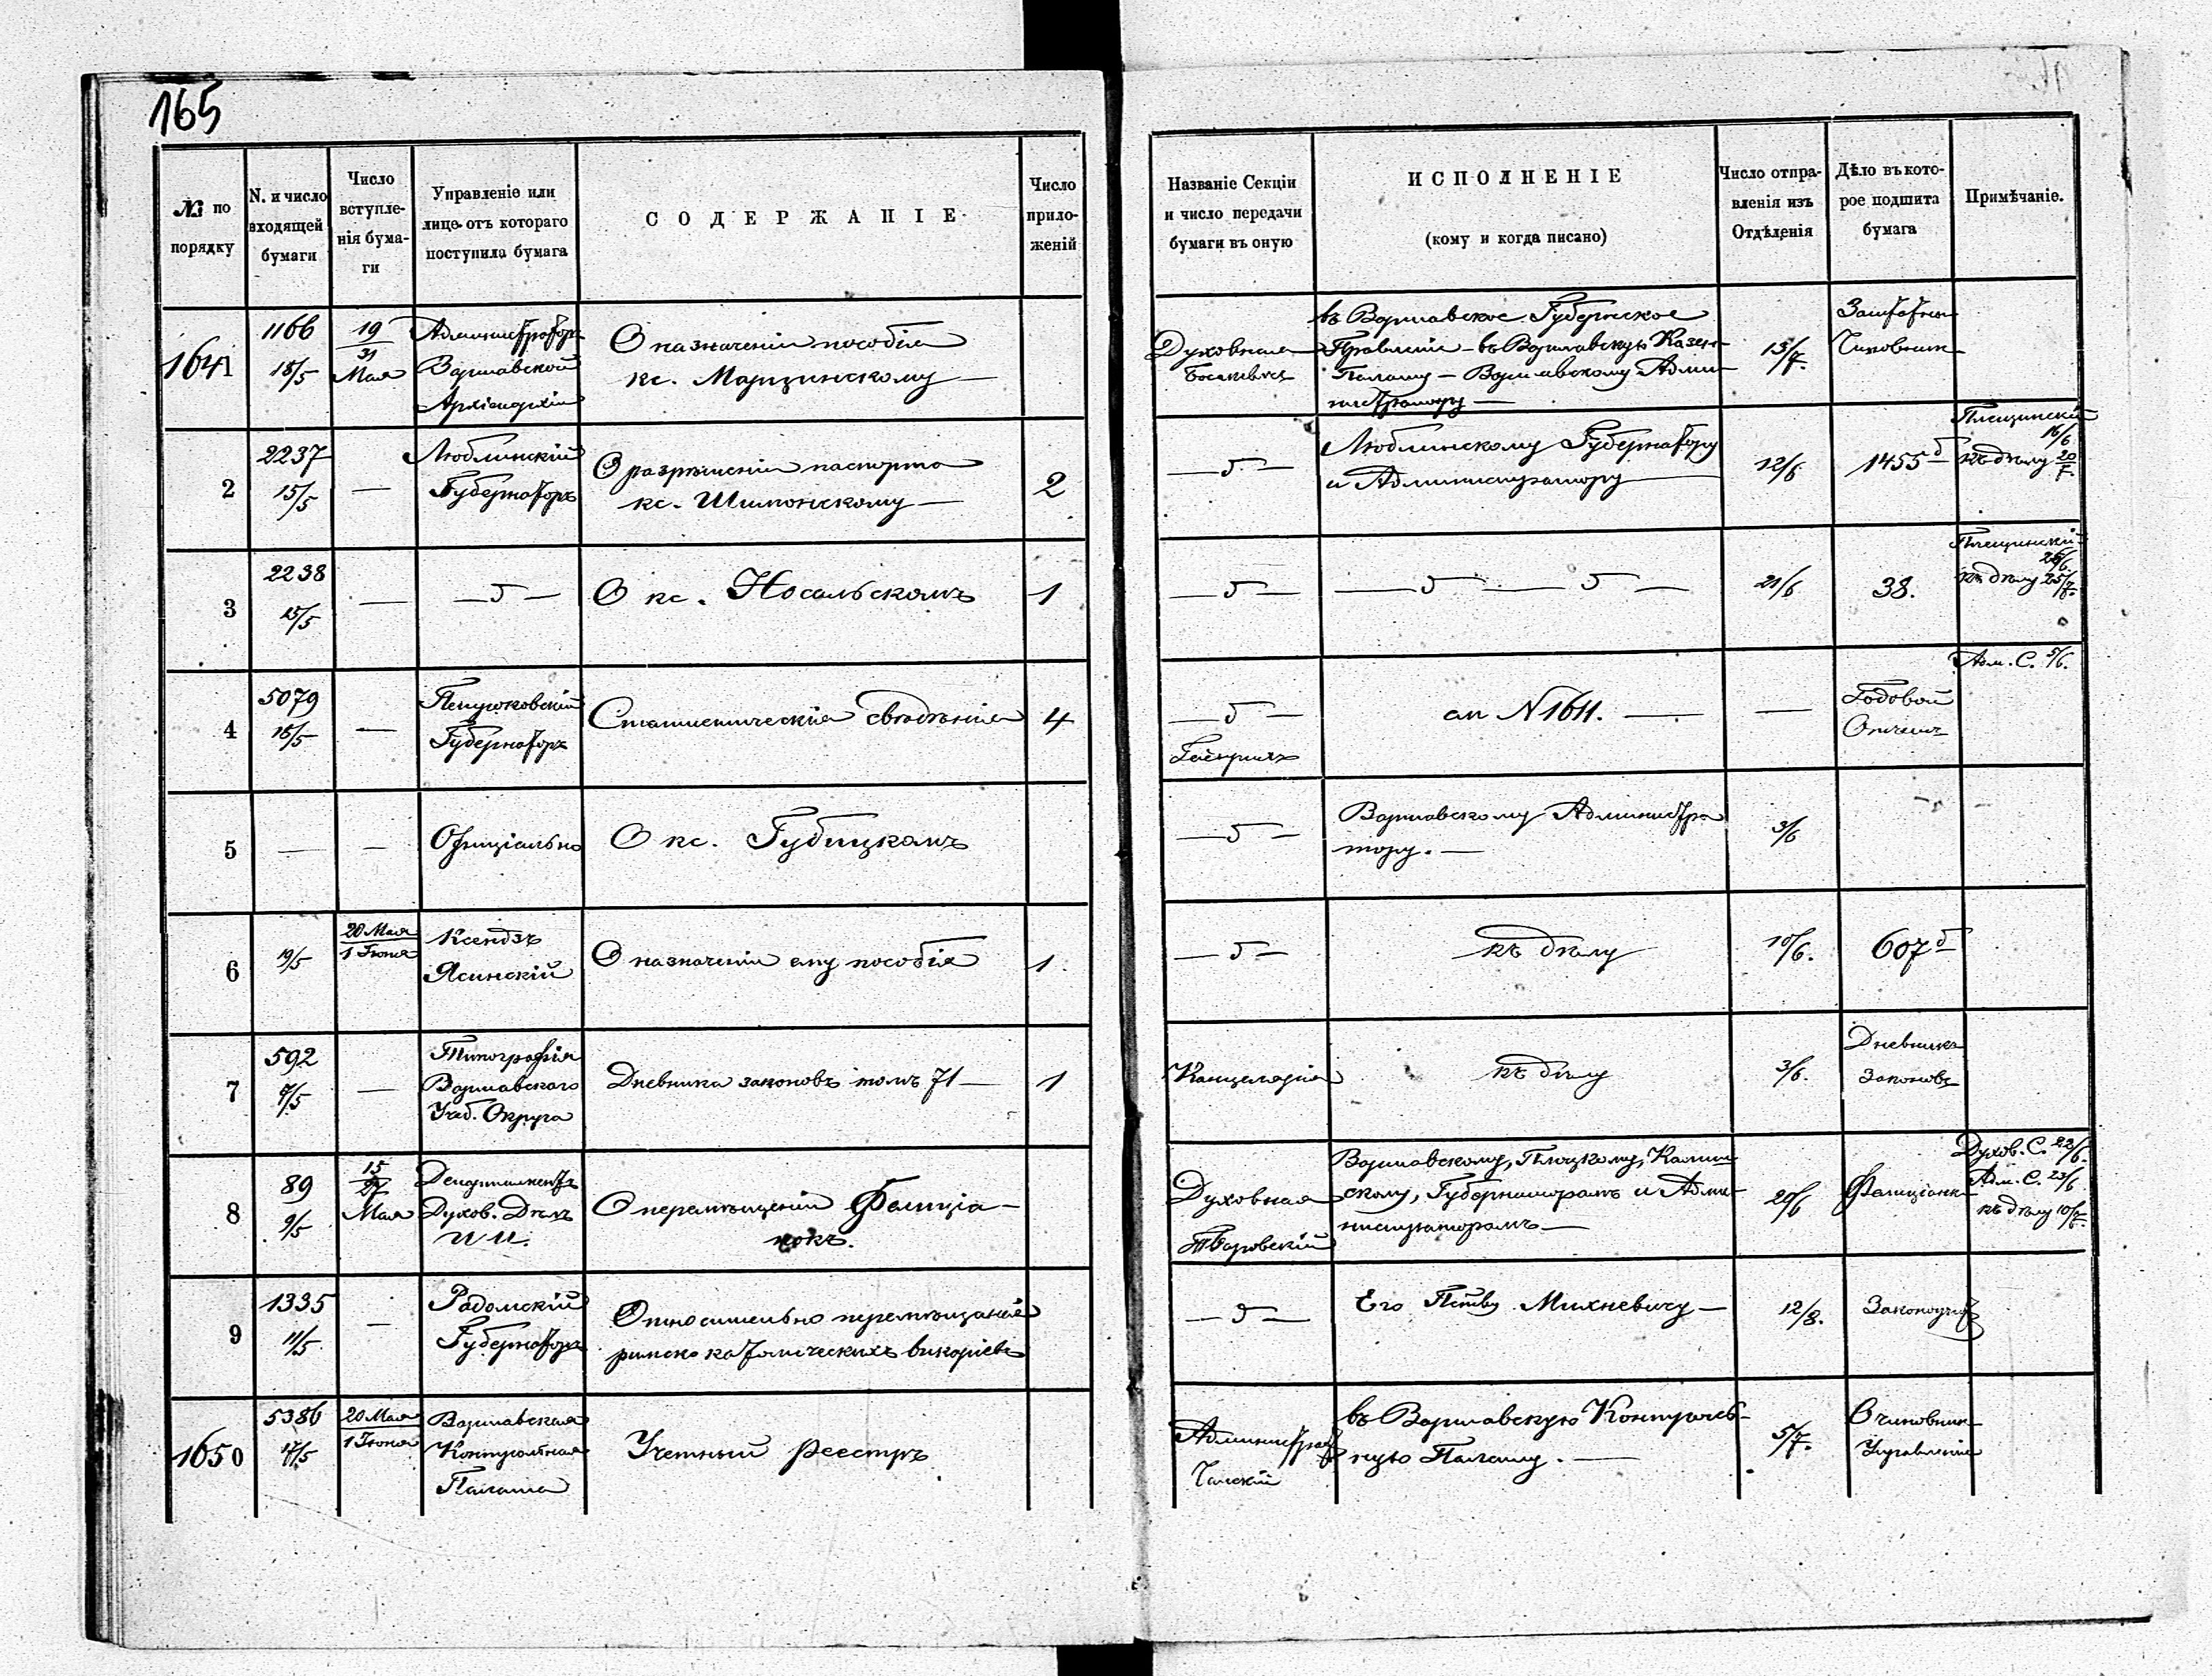 165
№ по порядку
N. и число входящей бумаги
Число вступле-нія бума-ги
Управленіе или лице отъ котораго поступила бумага
СОДЕРЖАНІЕ
Число прило-женій
Названіе Секціи и число передачи бумаги въ оную
ИСПОЛНЕНІЕ
(кому и когда писано)
Число отпра-вленія изъ Отдѣленія
Дѣло въ кото-рое подшита бумага
Примѣчаніе.
1641
1166
18/5
19/31 Мая
Администраторъ
Варшавской
Архіепархіи
О назначеніи пособія
кс. Марцинскому —
Духовная
въ Варшавское Губернское
Правленіе — въ Варшавскую Казен-
Палату — Варшавскому Адми-
нистратору —
15/7.
Заштатн.
Чиновник
2
2237
15/5
—
Люблинскій
Губернаторъ
О разрѣшеніи паспорта
кс. Шимонскому —
2
— 5 —
Люблинскому Губернатору
и Администратору —
12/6
1455 б
16/6
къ дѣлу 20/7.
3
2238
15/5
—
— 5 —
О кс. Носальскомъ
1
— 5 —
— 5 — — 5 —
21/6
38.
26/6
къ дѣлу 25/7.
4
5079
16/5
—
Петроковскій
Губернаторъ
Статистическія свѣдѣнія
4
— 5 —
ап N 1611. —
—
Годовой
Отчетъ
Адм. С. 5/6.
5
—
—
Офиціально
О кс. Губицкомъ
— 5 —
Варшавскому Администра
тору. —
3/6
6
19/5
20 Мая
1 Іюня
Ксендзъ
Ясинскій
О назначеніи ему пособія
1.
— 5 —
къ дѣлу
10/6.
607 б
7
592
7/5
—
Типографія
Варшавскаго
Учеб. Округа
Дневника законовъ томъ 71 —
1
Канцелярія
къ дѣлу
3/6.
Дневникъ
Законовъ
8
89
9/5
15/27
Мая
Департаментъ
Духов. Дѣлъ
И И.
О перемѣщеніи Фелиціа-
нокъ.
Духовная
Варшавскому, Плоцкому, Калиш
скому, Губернаторамъ и Адми-
нистраторамъ —
20/6
Фелиціанки
Духов. С. 22/6.
Адм. С. 23/6
къ дѣлу 10/7
9
1335
11/5
—
Радомскій
Губернаторъ
Относительно перемѣщенія
римско католическихъ викаріевъ
— 5 —
Его Пству Михневичу —
12/8.
1650
5386
17/5
20 Мая
1 Іюня
Варшавская
Контрольная
Палата
Учетный реестръ
въ Варшавскую Контроль-
ную Палату. —
5/7.
О чиновник
Управленія